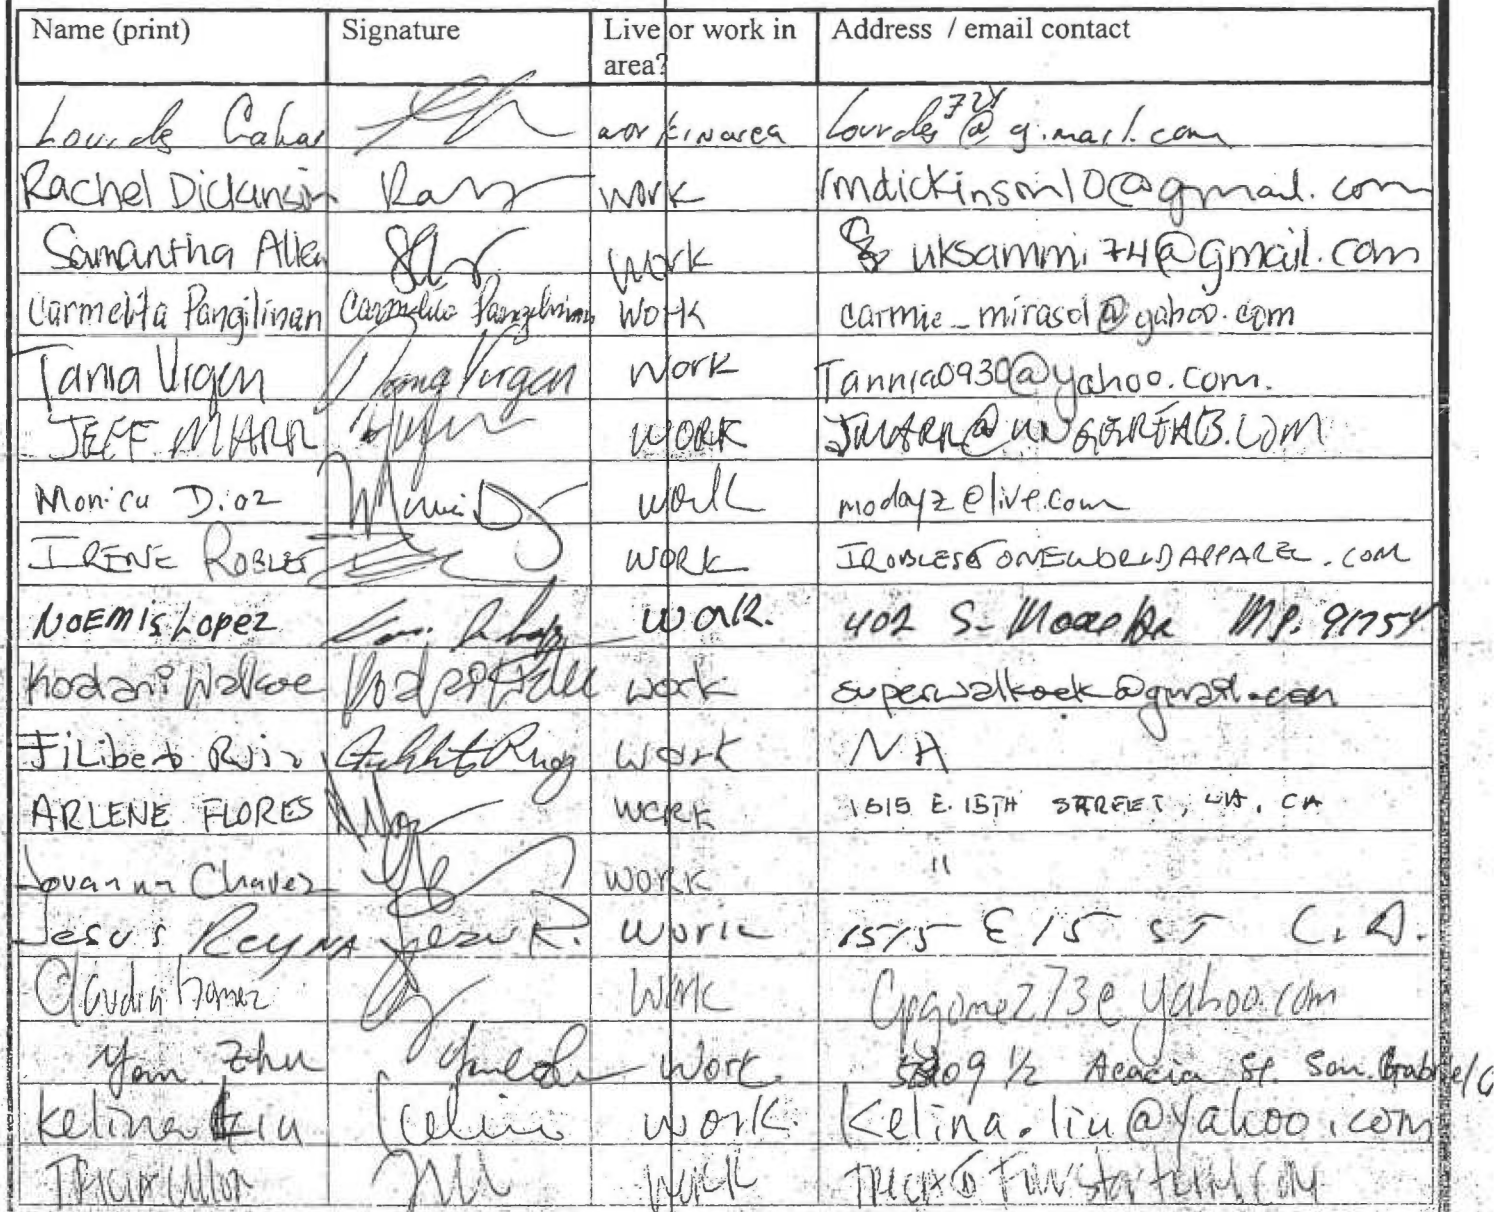 Name (print) Signature Live or work in area? Address / email contact
Lourdes work in area @g.mail.com
Rachel Dickinson work rmdickinson10@gmail.com
Samantha Allen work uksammi74@gmail.com
Carmelita Pangilinan Carmelita Pangilinan work carmie_mirasol@yahoo.com
Tania Virgen Tania Virgen work Tannia0930@yahoo.com.
JEFF MARR WORK
Monica Diaz work modayz@live.com
IRENE ROBLES WORK IROBLES@ONEWORLDAPPAREL.COM
NOEMIS Lopez work. 402 S. MP. 91754
Kodani Walkoe work superwalkoek@gmail.com
Filiberto Ruiz work NA
ARLENE FLORES WORK 1515 E. 15TH STREET, LA, CA
Jovanna Chavez WORK "
Jesus Reyna Jesus R. work 1515 E 15 ST
Claudia Gomez work @yahoo.com
Yan Zhu work. 09 1/2 Acacia St. San Gabriel
Kelina Liu Kelina work. Kelina.liu@yahoo.com
work